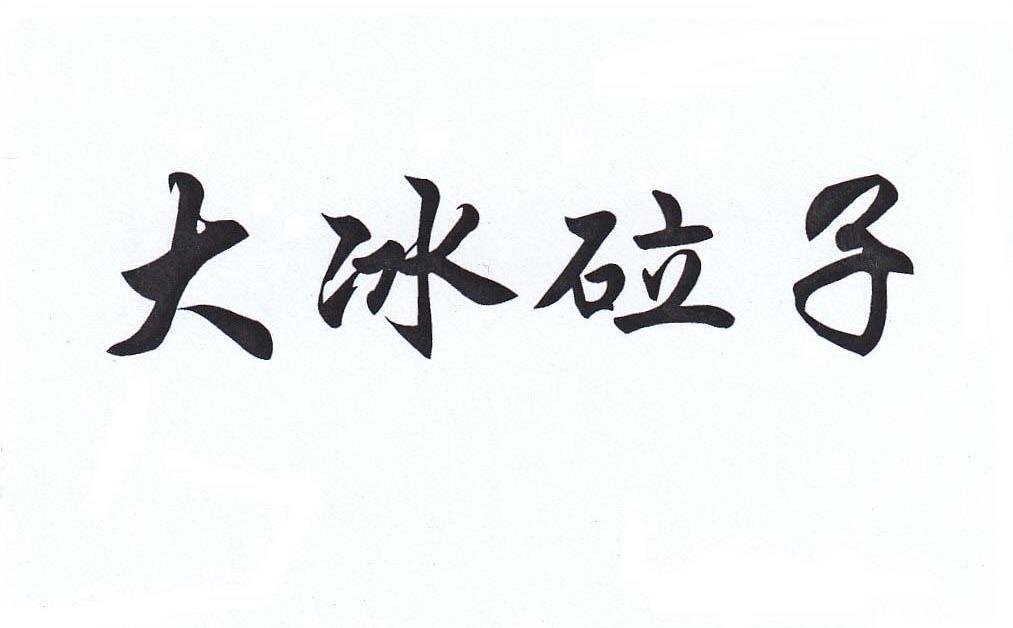 大冰砬子